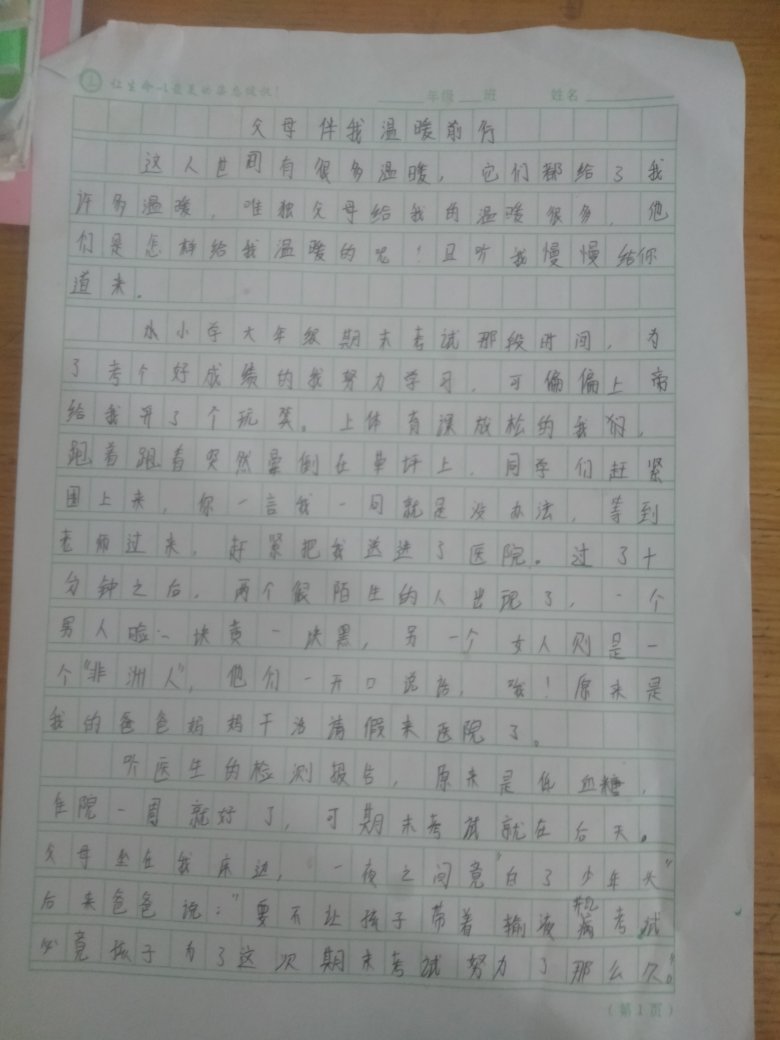 让生命以最美的姿态绽放！ ______年级___班 姓名________
父母伴我温暖前行
这人世间有很多温暖，它们都给了我
许多温暖，唯独父母给我的温暖很多，他
们是怎样给我温暖的呢！且听我慢慢给你
道来。
小学六年级期末考试那段时间，为
了考个好成绩的我努力学习，可偏偏上帝
给我开了个玩笑。上体育课放松的我们，
跑着跑着突然晕倒在草坪上，同学们赶紧
围上来，你一言我一句就是没办法，等到
老师过来，赶紧把我送进了医院。过了十
分钟之后，两个很陌生的人出现了，一个
男人脸一块黄一块黑，另一个女人则是一
个“非洲人”，他们一开口说话，哦！原来是
我的爸爸妈妈干活请假来医院了。
听医生的检测报告，原来是低血糖，
住院一周就好了，可期末考试就在后天。
父母坐在我床边，一夜之间竟“白了少年头”
后来爸爸说：“要不让孩子带着输液机考试
必竟孩子为了这次期末考试努力了那么久”。
（第1页）